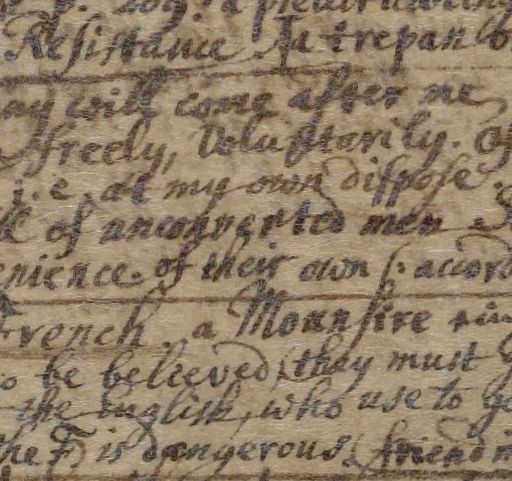 a prevaricating
Resistance. Ju trepan
any will come after me
freely, Voluntarily. Of
i.e. at my own dispose.
of unconverted men.
enience. of their own s: accord
French. a Mounsire
to be believed, they must
the English, who use to
the F is dangerous. friend